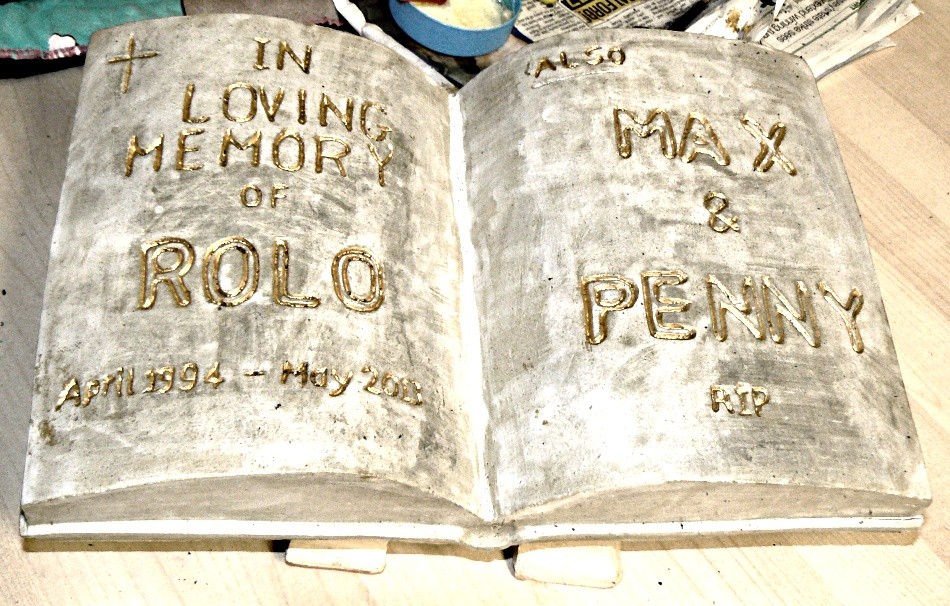 IN
LOVING
MEMORY
OF
ROLO
April 1994 - May 2013
ALSO
MAX
&
PENNY
RIP